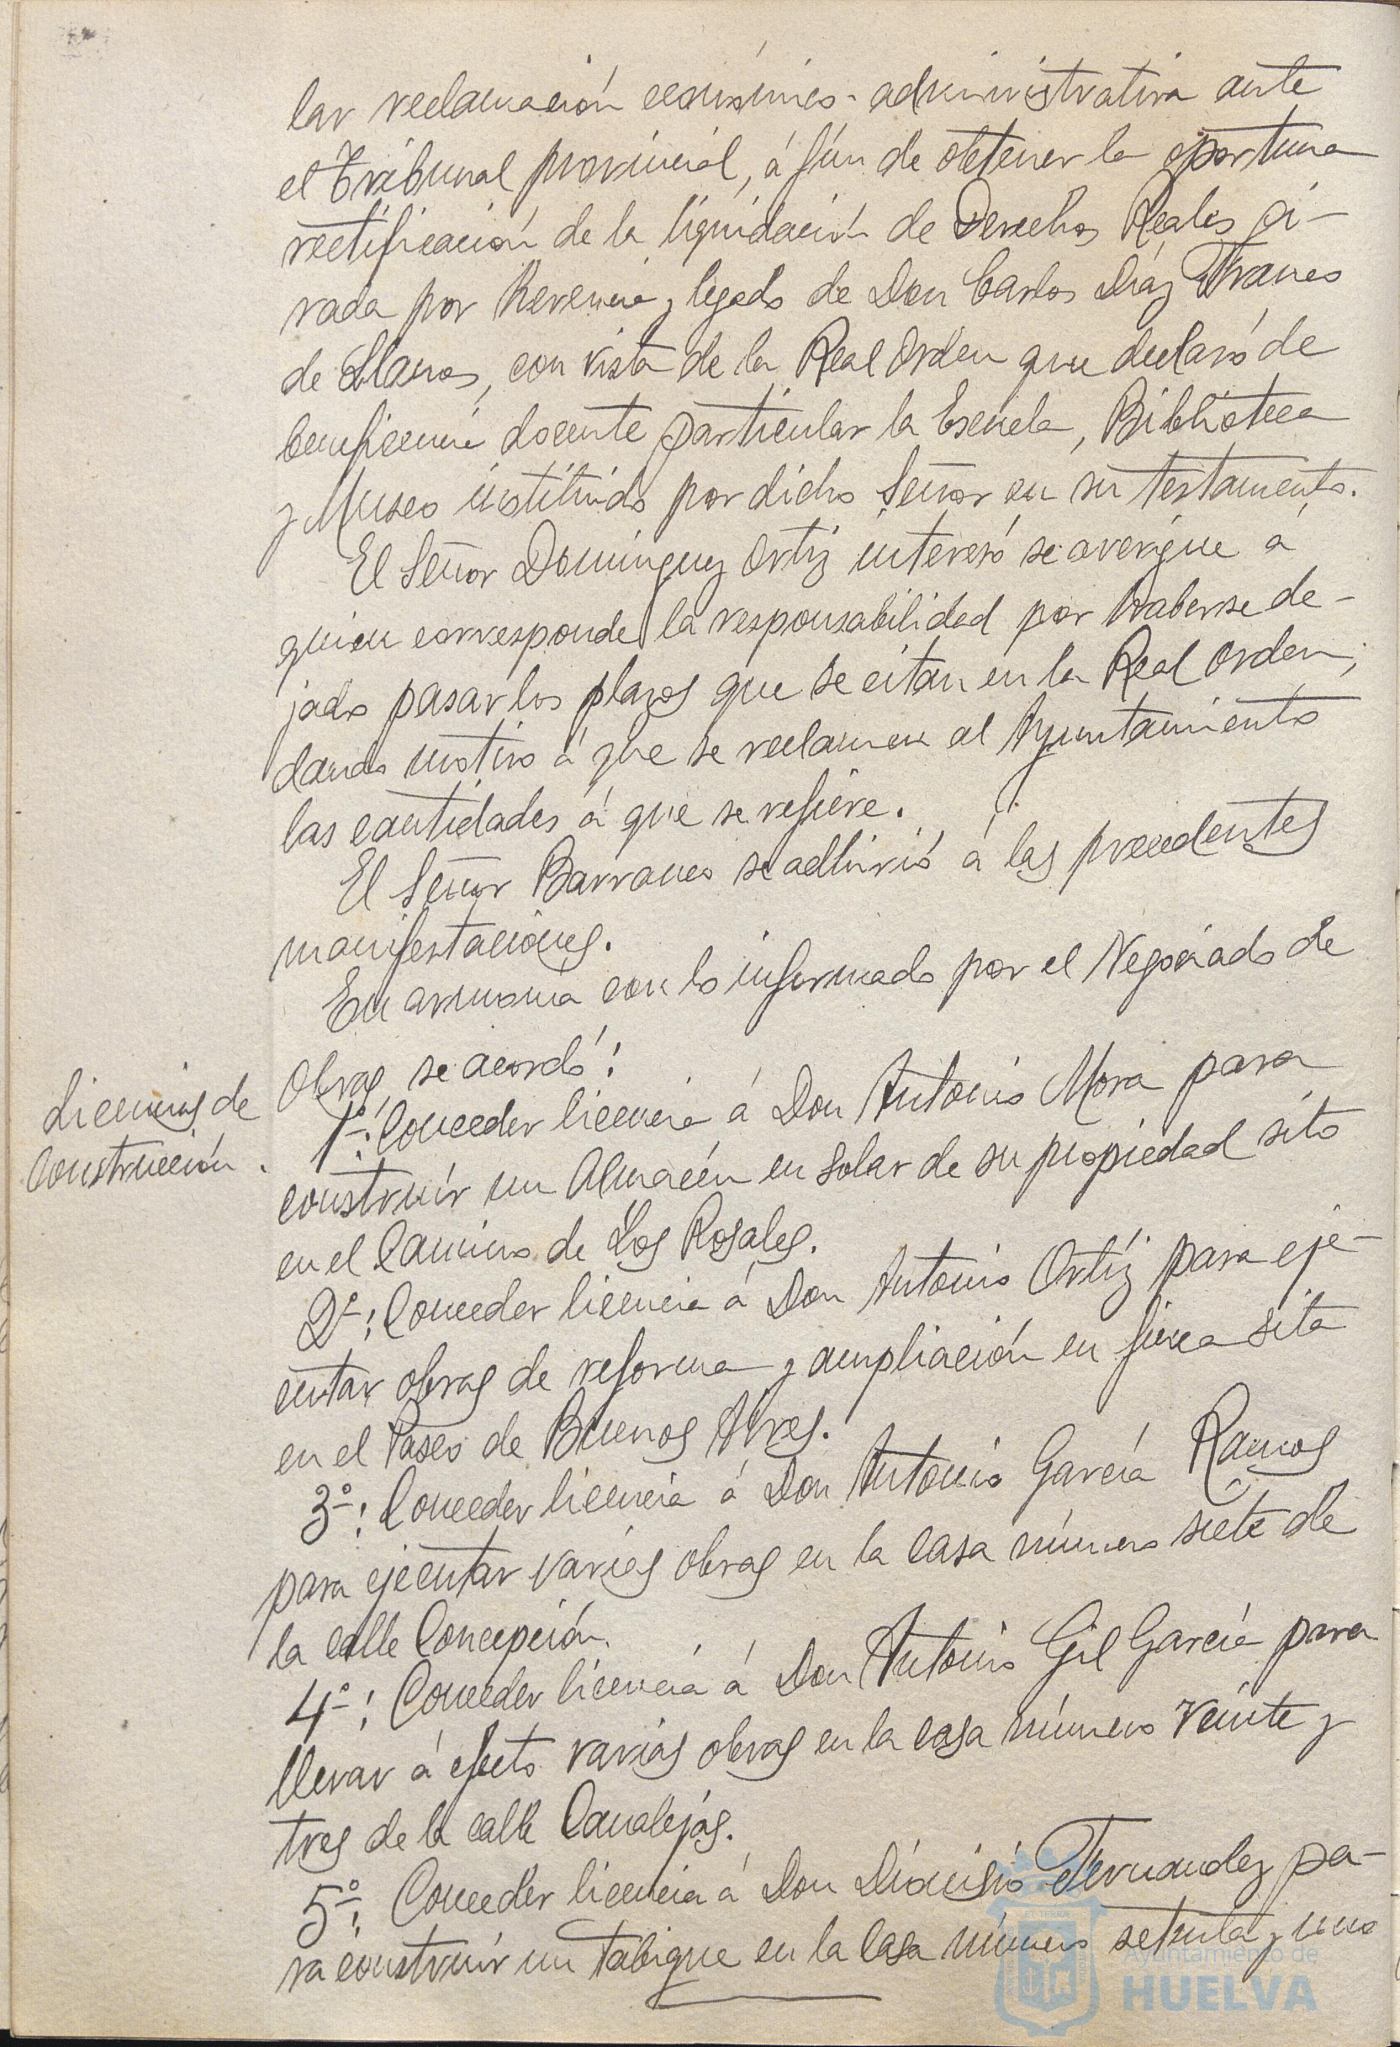 lar reclamación económico-administrativa ante
el Tribunal provincial, á fin de obtener la oportuna
rectificación de la liquidación de Derechos Reales gi-
rada por herencia y legado de Don Carlos Díaz Franco
de Llanos, con vista de la Real Orden que declaró de
beneficencia docente particular la Escuela, Biblioteca
y Museo instituido por dicho Señor en su testamento.
El Señor Domínguez Ortiz interesó se averigüe á
quien corresponde la responsabilidad por haberse de-
jado pasar los plazos que se citan en la Real Orden,
dando motivo á que se reclamen al Ayuntamiento
las cantidades á que se refiere.
El Señor Barranco se adhirió á las precedentes
manifestaciones.
En armonía con lo informado por el Negociado de
Obras, se acordó:
Licencias de
Construcción.
1º: Conceder licencia á Don Antonio Mora para
construir un Almacén en solar de su propiedad sito
en el Camino de Los Rosales.
2º: Conceder licencia á Don Antonio Ortíz para eje-
cutar obras de reforma y ampliación en finca sita
en el Paseo de Buenos Aires.
3º: Conceder licencia á Don Antonio García Ramos
para ejecutar varias obras en la casa número siete de
la calle Concepción.
4º: Conceder licencia á Don Antonio Gil García para
llevar á efecto varias obras en la casa número veinte y
tres de la calle Canalejas.
5º: Conceder licencia á Don Dionisio Fernandez pa-
ra construir un tabique en la casa número setenta y uno
Ayuntamiento de
HUELVA